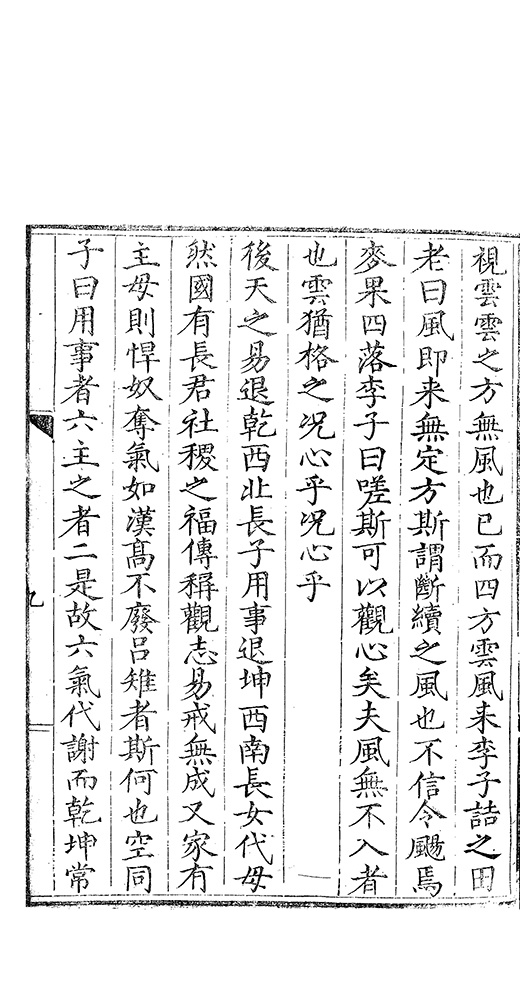 視雲雲之方無風也已而四方雲風来李子詰之田
老曰風即来無定方斯謂斷續之風也不信令颺焉
麥果四落李子曰嗟斯可以觀心矣夫風無不入者
也雲猶格之况心乎况心乎
後天之易退乾西北長子用事退坤西南長女代母
然國有長君社稷之福傳稱觀志易戒無成又家有
主母則悍奴奪氣如漢髙不廢呂雉者斯何也空同
子曰用事者六主之者二是故六氣代謝而乾坤常
九